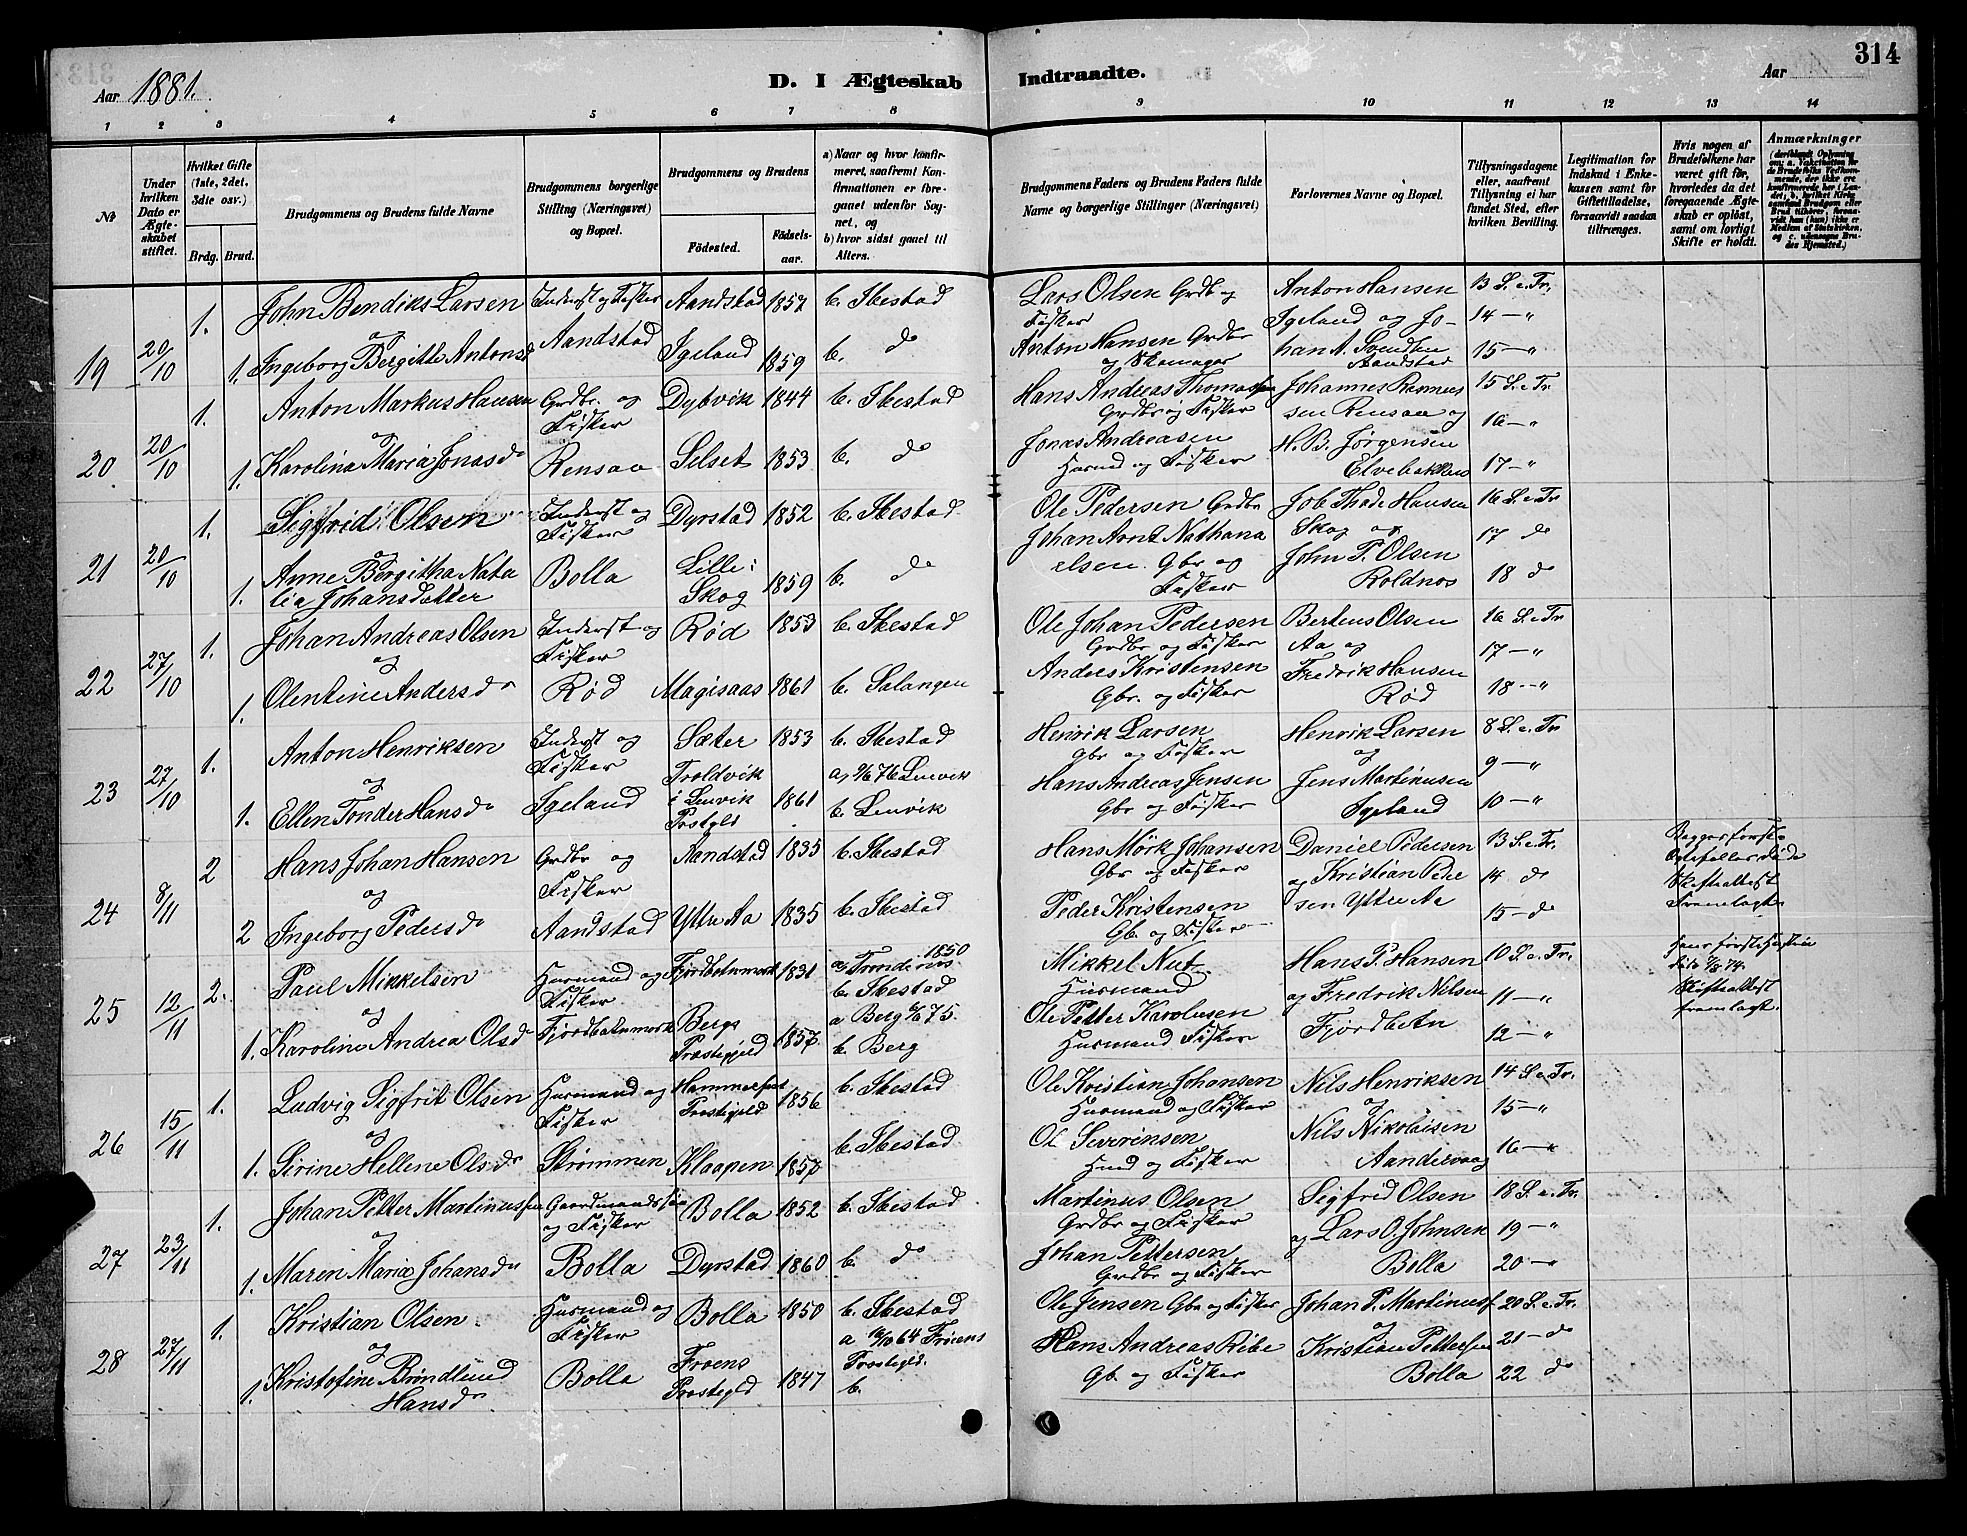 Aar 1881. D. I Ægteskab Indtraadte. Aar 314
1 2 3 4 5 6 7 8 9 10 11 12 13 14
No
Under hvilken Dato er Ægteskabet stiftet.
Hvilket Gifte (1ste, 2det, 3die osv.)
Brdg. Brud.
Brudgommens og Brudens fulde Navne
Brudgommens borgerlige Stilling (Næringsvei) og Bopæl.
Brudgommens og Brudens
Fødested. Fødselsaar.
a) Naar og hvor konfirmeret, saafremt Konfirmationen er foregaaet udenfor Sognet, og
b) hvor sidst gaaet til Alters.
Brudgommens Faders og Brudens Faders fulde Navne og borgerlige Stillinger (Næringsvei)
Forlovernes Navne og Bopæl.
Tillysningsdagene eller, saafremt Tillysning ei har fundet Sted, efter hvilken Bevilling.
Legitimation for Indskud i Enkekassen samt for Giftetilladelse, forsaavidt saadan tiltrænges.
Hvis nogen af Brudefolkene har været gift før, hvorledes da det foregaaende Ægteskab er opløst, samt om lovligt Skifte er holdt.
Anmærkninger
19 20/10 1. John Bendiks Larsen Inderst og Fisker Aandstad 1857 b. Ibestad Lars Olsen Grdb og Fisker Anton Hansen 13 S. e. Tr.
og Aandstad Igeland og Jo- 14 — "
1. Ingeborg Bergitte Antonsd Igeland 1859 b. do Anton Hansen Grdbr og Skomager han A. Svendsen Aandstad 15 — "
20 20/10 1. Anton Markus Hansen Grdbr. og Fisker Dybvik 1844 b. Ibestad Hans Andreas Thomassen Grdbr og Fisker Johannes Rasmus 15 S. e Tr.
og sen Rensaa og 16 — "
1. Karolina Maria Jonasdr Rensaa Selset 1853 b. do Jonas Andreasen Husmd og Fisker H. B. Jørgensen Elvebakken 17 — "
21 20/10 1. Sigfrid Olsen Inderst og Fisker Dyrstad 1852 b. Ibestad Ole Pedersen Grdbr Job Thade Hansen 16 S. e Tr
og Skog og 17 do
1. Anne Bergitha Nata lia Johansdatter Bolla Lille Skog 1859 b. do Johan Arnt Nathana elsen. Gbr og Fisker John P. Olsen Roldnos 18 do
22 27/10 1. Johan Andreas Olsen Inderst og Fisker Rød 1853 b. Ibestad Ole Johan Pedersen Grdbr og Fisker Berteus Olsen 16 S. e Tr
og Aa og 17 — "
1. Olentine Andersdr Rød Magisaas 1861 b. Salangen Anders Kristensen Gbr. og Fisker Fredrik Hansen Rød 18 — "
23 27/10 1. Anton Henriksen Inderst og Fisker Sæter 1853 b. Ibestad Henrik Larsen Gbr og Fisker Henrik Larsen 8 S. e. Tr
og og 9 — "
1. Ellen Tonder Hansdr Igeland Troldvik i Lenvik Prstgld 1861 76 Lenvik b. Lenvik Hans Andreas Jensen Gbr og Fisker Jens Martinusen Igeland 10 — "
24 8/11 2 Hans Johan Hansen Grdbr og Fisker Aandstad 1835 b. Ibestad Hans Mørk Johansen Gbr og Fisker Daniel Pedersen 13 S. e. Tr.
og og Kristian Peder 14 do
2 Ingeborg Pedersdr Aandstad Yttre Aa 1835 b. Ibestad Peder Kristensen Gb. og Fisker sen Yttre Aa 15 — do
Begges første Egtefeller døde Skifteattest Fremlagte
25 12/11 2. Paul Mikkelsen Husmand og Fisker Fjordbotnmark 1831 a Trondenes 1850 b. Ibestad Mikkel Nut Husmand Hans P. Hansen 10 S. e Tr.
og og Fredrik Nilsen 11 — "
1. Karoline Andrea Olsdr Fjordbotnmark Bergs Præstegjeld 1857 a Berg 75. b. Berg Ole Petter Karolusen Husmand Fisker Fjordbotn 12 — "
Hans første Hustru død 74. Skifteattest fremlagt.
26 15/11 1. Ludvig Sigfrit Olsen Husmand og Fisker Hammerfest Præstegjeld 1856 b. Ibestad Ole Kristian Johansen Husmand og Fisker Nils Henriksen 14 S. e Tr.
og og 15 — "
1. Sirine Hellene Olsdr Strømmen Klaapen 1857 b. Ibestad Ol Severinsen Hmd og Fisker Nils Nikolaisen Aandervaag 16 — "
27 23/11 1. Johan Petter Martinussen Gaardmandssøn og Fisker Bolla 1852 b. Ibestad Martinus Olsen Grdbr og Fisker Sigfrid Olsen 18 S. e. Tr.
og og Lars O. Johnsen 19 — "
1. Maren Maria Johansdr Bolla Dyrstad 1860 b. do Johan Pettersen Grdbr og Fisker Bolla 20 — "
28 27/11 1. Kristian Olsen Husmand og Fisker Bolla 1850 b. Ibestad Ole Jensen Gbr og Fisker Johan P. Martinuss. 20 S. e Tr.
og og 21 — do
1. Kristofine Brøndlund Hansdr Bolla Froens Prstegld 1847 a 64 Froens Prstegld. b. Hans Andreas Ribe Gb. og Fisker Kristian Pettersen Bolla 22 do